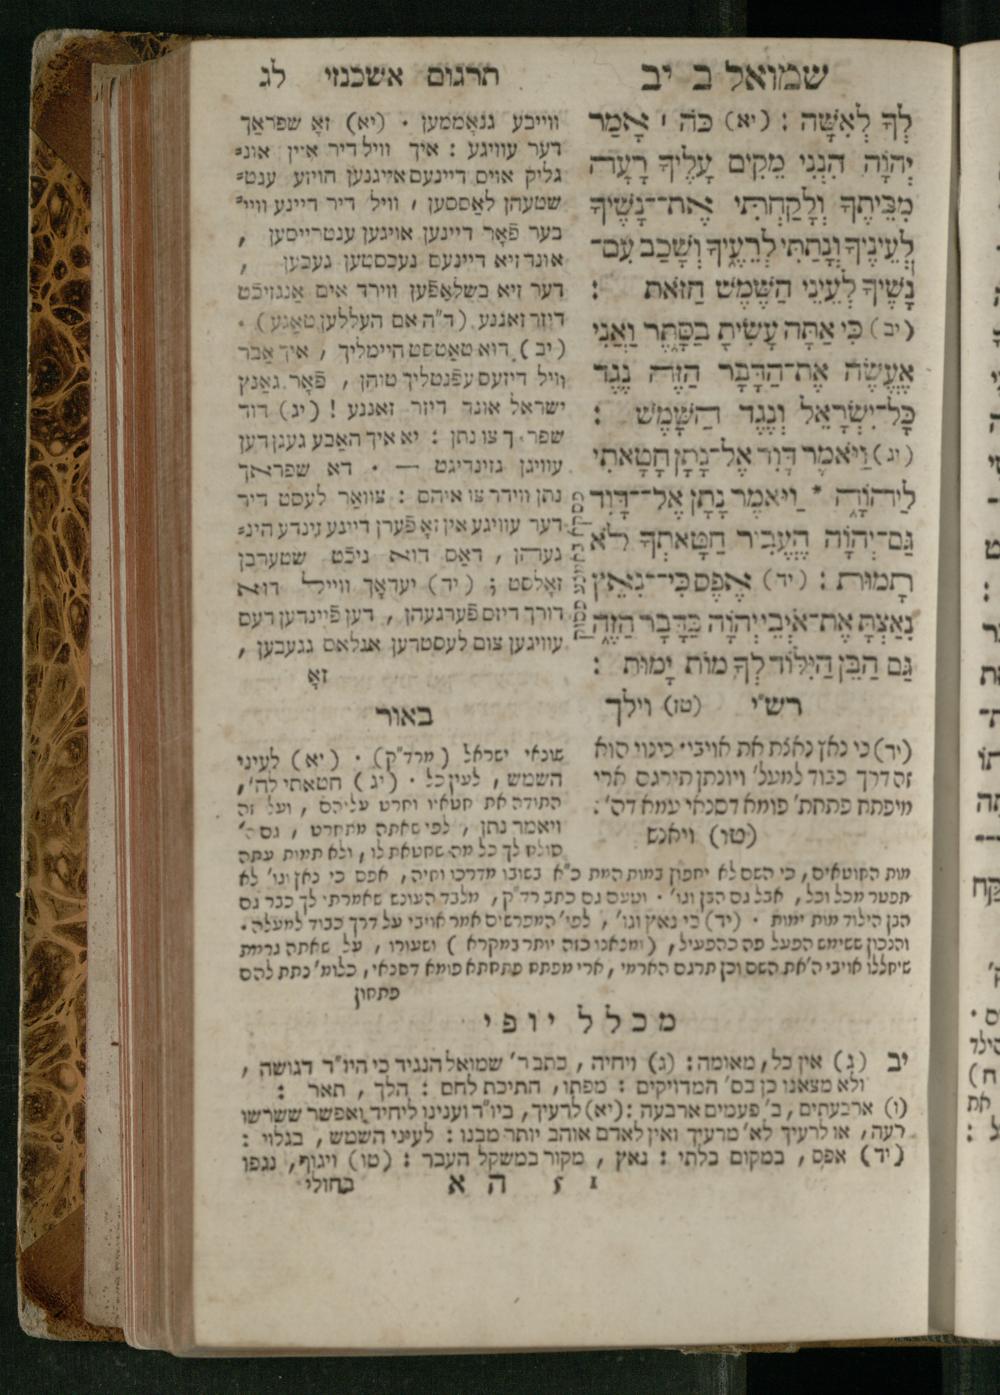 שמואל ב יב
תרגום אשכנזי לג
לְךָ לְאִשָּׁה : (יא) כֹּה ׀ אָמַר
יְהוָֹה הִנְנִי מֵקִים עָלֶיךָ רָעָה
מִבֵּיתֶךָ וְלָקַחְתִּי אֶת־נָשֶׁיךָ
לְעֵינֶיךָ וְנָתַתִּי לְרֵעֶיךָ וְשָׁכַב עִם־
נָשֶׁיךָ לְעֵינֵי הַשֶּׁמֶשׁ הַזֹּאת :
(יב) כִּי אַתָּה עָשִׂיתָ בַסָּתֶר וַאֲנִי
אֶעֱשֶׂה אֶת־הַדָּבָר הַזֶּה נֶגֶד
כָּל־יִשְׂרָאֵל וְנֶגֶד הַשָּׁמֶשׁ :
(יג) וַיֹּאמֶר דָּוִד אֶל־נָתָן חָטָאתִי
לַיהוָֹה * וַיֹּאמֶר נָתָן אֶל־דָּוִד
גַּם־יְהוָֹה הֶעֱבִיר חַטָּאתְךָ לֹא
תָמוּת : (יד) אֶפֶס כִּי־נִאֵץ
נִאַצְתָּ אֶת־אֹיְבֵי יְהוָֹה בַּדָּבָר הַזֶּה
גַּם הַבֵּן הַיִּלּוֹד לְךָ מוֹת יָמוּת :
פסקא באמצע פסוק
ווייבע גנאממען . (יא) זאָ שפראַך
דער עוויגע : איך וויל דיר איין אונ=
גליק אויס דיינעם אייגנען הויזע ענט=
שטעהן לאַססען , וויל דיר דיינע וויי=
בער פֿאָר דיינען אויגען ענטרייסען ,
אונד זיא דיינעם נעכסטען געבען ,
דער זיא בשלאפֿען ווירד אים אנגזיכֿט
דיזר זאננע (ד"ה אם העללען טאַגע) .
(יב) דוא טאַטסט היימליך , איך אבר
וויל דיזעס עפֿנטליך טוהן , פֿאָר גאַנץ
ישראל אונד דיזר זאננע ! (יג) דוד
שפרך צו נתן : יא איך האַבע געגן דען
עוויגן גזינדיגט — . דא שפראך
נתן ווידר צו איהם : צוואַר לעסט דיר
דער עוויגע אין זאָ פֿערן דיינע זינדע הינ=
געהן , דאַס דוא ניכֿט שטערבן
זאָלסט ; (יד) יעדאָך ווייל דוא
דורך דיזס פֿערגעהן , דען פֿיינדען דעם
עוויגען צום לעסטרען אנלאס געגעבען ,
זאָ
רש"י (טז) וילך
(יד) כי נאץ נאצת את אויבי כינוי הוא
זה דרך כבוד למעל' ויונתן תירגם ארי
מיפתח פתחת' פומא דסנאי עמא דה' :
(טו) ויאנש
באור
שונאי ישראל (מרד"ק) . (יא) לעיני
השמש , לעין כל . (יג) חטאתי לה' ,
התודה את חטאיו וחרט עליהם , ועל זה
ויאמר נתן , לפי שאתה מתחרט , גם ה'
סולח לך כל מה שחטאת לו , ולא תמות עתה
מות החוטאים , כי השם לא יחפוץ במות המת כ"א בשובו מדרכו וחיה , אפס כי נאץ וגו' לא
תפטר מכל וכל , אבל גם הבן וגו' . וטעם גם כתב רד"ק , מלבד העונש שאמרתי לך כבר גם
הבן הילוד מות ימות . (יד) כי נאץ וגו' , לפי' המפרשים אמר אויבי על דרך כבוד למעלה .
והנכון ששימש הפעל פה כהפעיל , (ומצאנו כזה יותר במקרא) ושעורו , על שאתה גרמת
שיחללו אויבי ה' את השם וכן תרגם הארמי , ארי מפתח פתחתא פומא דסנאי , כלומ' נתת להם
פתחון
מכלל יופי
יב (ג) אין כל , מאומה : (ג) ויחיה , כתב ר' שמואל הנגיד כי היו"ד דגושה ,
ולא מצאנו כן בס' המדויקים : מפתו , חתיכת לחם : הלך , תאר :
(ו) ארבעתים , ב' פעמים ארבעה : (יא) לרעיך , ביו"ד וענינו ליחיד ואפשר ששרשו
רעה , או לרעיך לא' מרעיך ואין לאדם אוהב יותר מבנו : לעיני השמש , בגלוי :
(יד) אפס , במקום בלתי : נאץ , מקור במשקל העבר : (טו) ויגוף , נגפו
בחולי